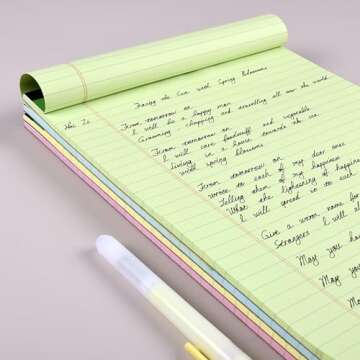 Facing the Sea with Spring Blossoms
Hai Zi
From tomorrow on
I will be a happy man
Grooming, chopping and travelling all over the world
From tomorrow on
I will care foodstuff and vegetable
Living in a house towards the sea
With spring blossoms
From tomorrow on
wrote to each of my dear ones
Telling them of my happiness
What the lightening of happiness
I will spread it to each
Give a warm name for
Strangers I will al
May you ha
May you
May